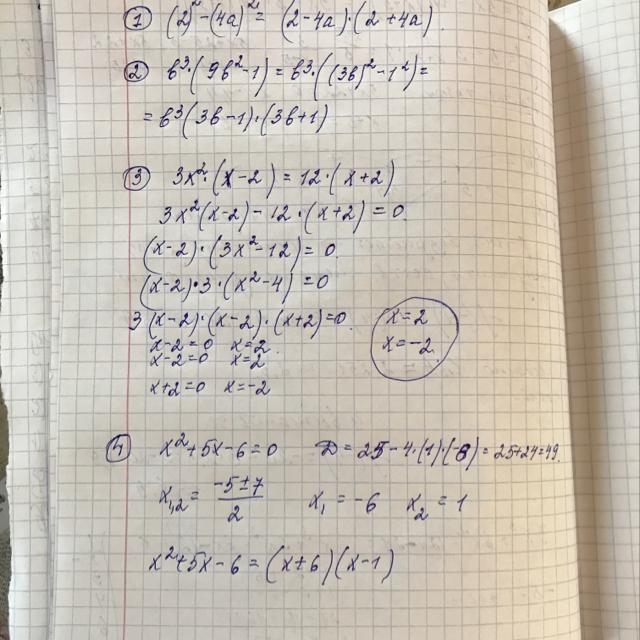 ① (2)² - (4a)² = (2-4a)·(2+4a)
② b³·(9b²-1) = b³·((3b)²-1²) =
= b³(3b-1)·(3b+1)
③ 3x²·(x-2) = 12·(x+2)
3x²(x-2) - 12·(x+2) = 0
(x-2)·(3x²-12) = 0
(x-2)·3·(x²-4) = 0
3(x-2)·(x-2)·(x+2) = 0
x-2=0 x=2
x-2=0 x=2
x+2=0 x=-2
x=2
x=-2
④ x²+5x-6=0 D=25-4·(1)·(-6)=25+24=49
x₁,₂ = (-5±7)/2 x₁ = -6 x₂ = 1
x²+5x-6 = (x+6)(x-1)